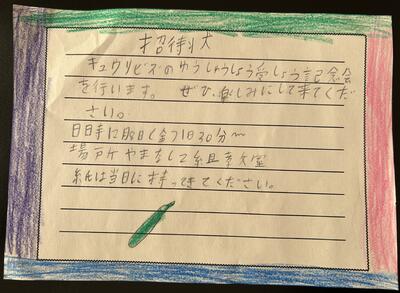 招待状
キュウリビズのゆうしゅうしょう受しょう記念会
を行います。 ぜひ、楽しみにして来てくだ
さい。
日時12月8日(金) 30分〜
場所 やまなし2組教室
紙は当日に持ってきてください。